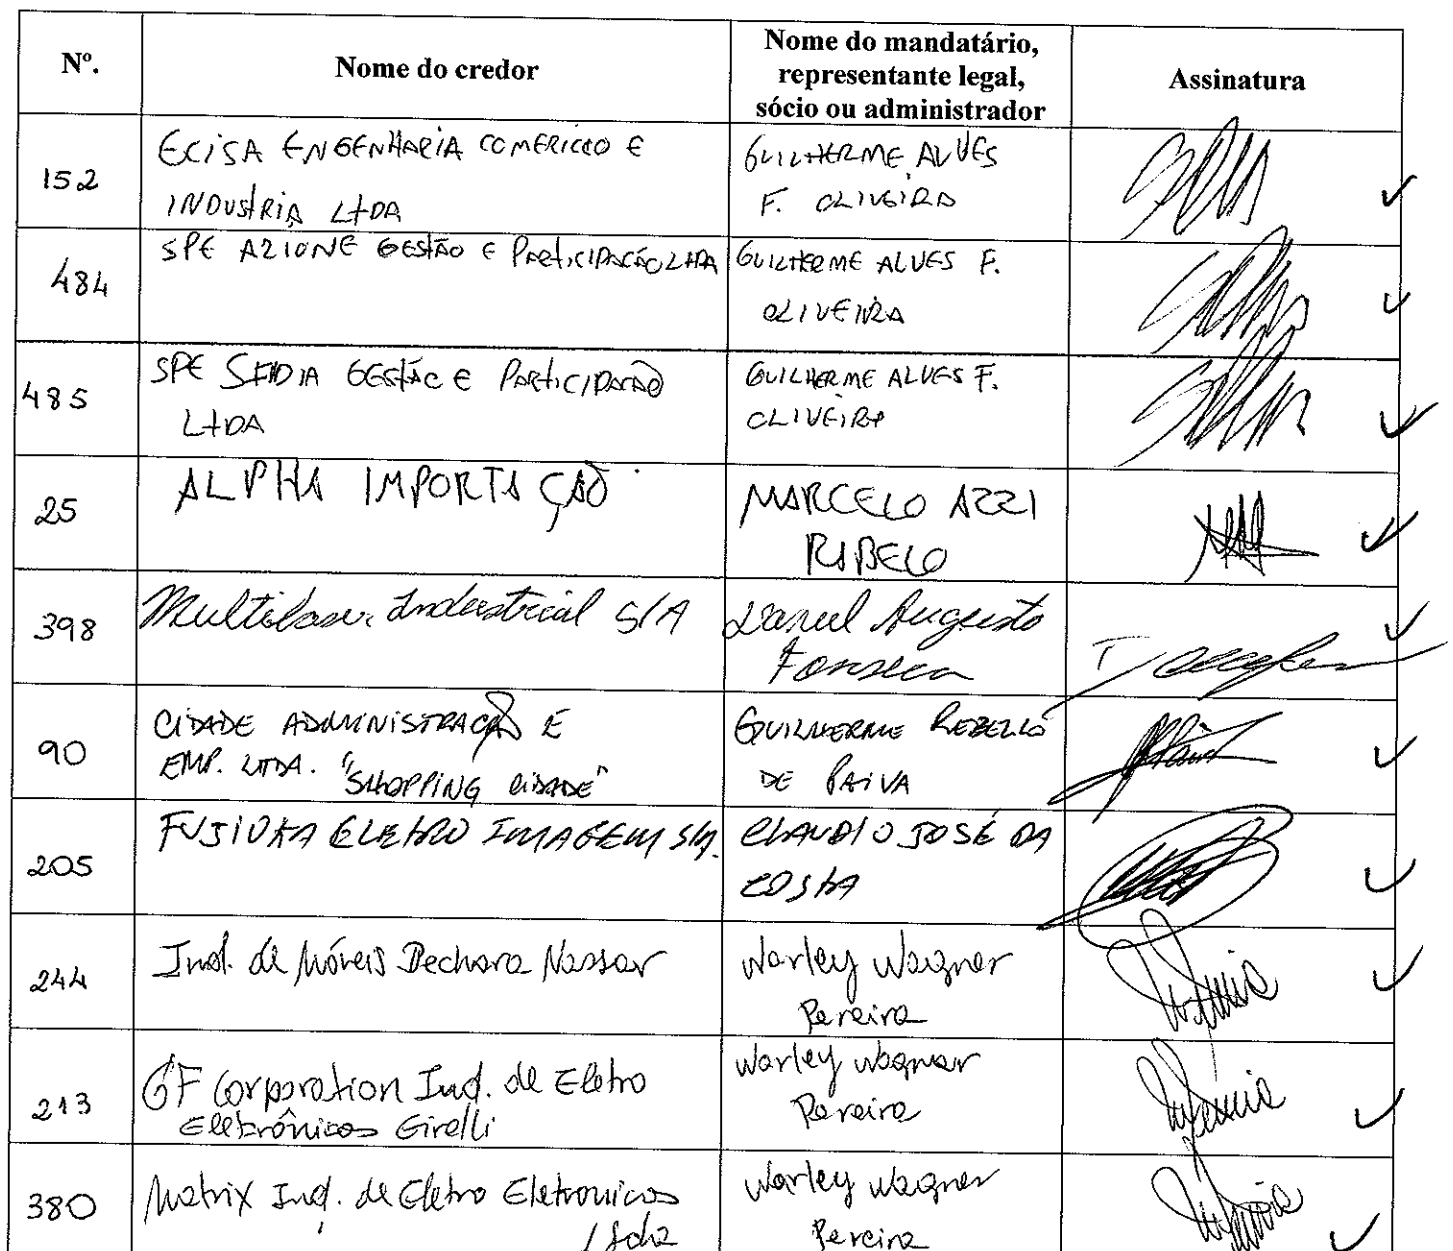 Nº.
Nome do credor
Nome do mandatário,
representante legal,
sócio ou administrador
Assinatura
152
ECISA ENGENHARIA COMERICIO E
INDUSTRIA LTDA
GUILHERME ALVES
F. OLIVEIRA
484
SPE AZIONE GESTÃO E PARTICIPAÇÃO LTDA
GUILHERME ALVES F.
OLIVEIRA
485
SPE GESTÃO E PARTICIPAÇÃO
LTDA
GUILHERME ALVES F.
OLIVEIRA
25
ALPHA IMPORTAÇÃO
MARCELO AZZI
RABELO
398
Multilaser Industrial S/A
Daniel Augusto
Fonseca
90
CIDADE ADMINISTRAÇÃO E
EMP. LTDA. "SHOPPING CIDADE"
GUILHERME REBELLO
DE PAIVA
205
FUJIOKA ELETRO IMAGEM S/A.
CLAUDIO JOSÉ DA
COSTA
244
Ind. de Móveis Bechara Nassar
Warley Wagner
Pereira
213
GF Corporation Ind. de Eletro
Eletrônicos Girelli
Warley Wagner
Pereira
380
Matrix Ind. de Eletro Eletronicos
Ltda
Warley Wagner
Pereira